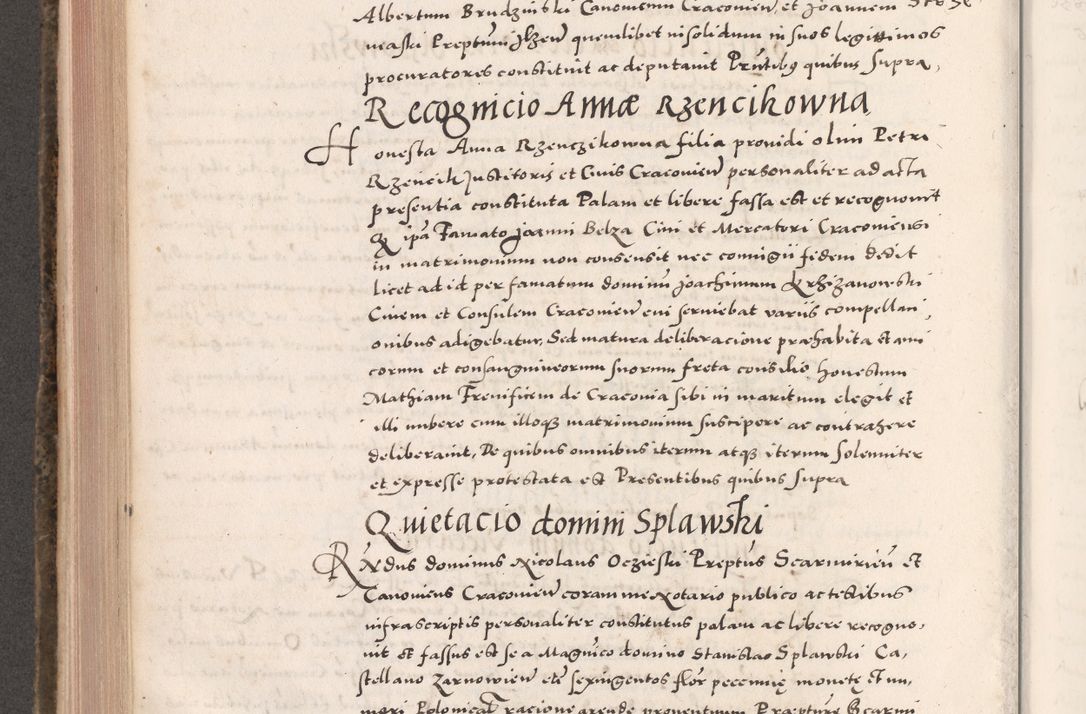 Albertum Brudzinski Canonicum Cracovien et Joannem
neaski Preptum Jlzen quemlibet in solidum in suos legittimos
procuratores constituit ac deputavit Pntibus quibus supra,
Recognicio Annæ Rzencikowna
Honesta Anna Rzenczikowna filia providi olim Petri
Rzencik Institoris et Civis Cracovien personaliter ad acta
presentia constituta Palam et libere fassa est et recognovit
Q ipa Famato Joanni Belza Civi et Mercatori Cracoviensi
in matrimonium non consensit nec coniugii fidem dedit
licet ad id per famatum dominum Joachimum Krhizanowski
Civem et Consulem Cracovien cui serviebat variis compellati,
onibus adigebatur, Sed matura deliberacione præhabita et ami
corum et consanguineorum suorum freta consilio honestum
Mathiam Frenificem de Cracovia sibi in maritum elegit et
illi nubere cum illoqꝫ matrimonium suscipere ac contrahere
deliberavit, De quibus omnibus iterum atqꝫ iterum solemniter
et expresse protestata est Presentibus quibus supra
Quietacio domini Splawski
Rndus dominus Nicolaus Oczieski Preptus Scarmirien et
Canonicus Cracovien coram me Notario publico ac testibus
infrascriptis personaliter constitutus palam ac libere recogno,
vit et fassus est se a Magnico domino Stanislao Splawski Ca,
stellano Zarnowien etc sexingentos flor pecunię monetę et nu,
meri Polonical ratione arende proventuum Præpture Scarmi